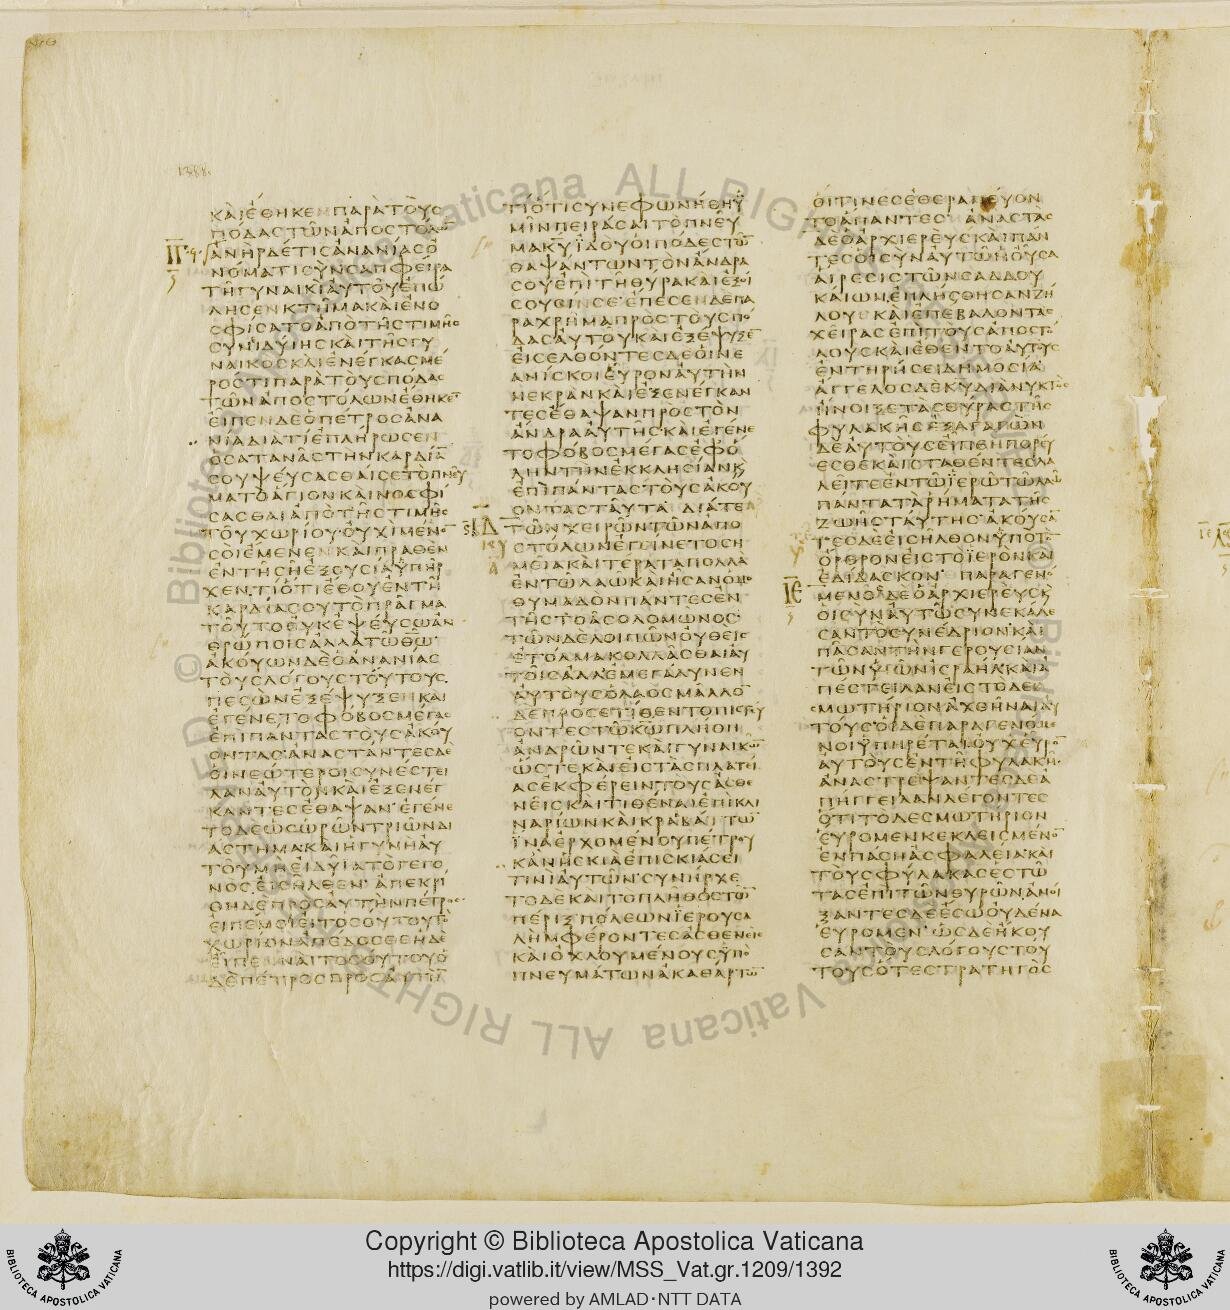 1388
ΚΑΙ ΕΘΗΚΕΝ ΠΑΡΑ ΤΟΥΣ
ΠΟΔΑΣ ΤΩΝ ΑΠΟΣΤΟΛΩ̅
ΑΝΗΡ ΔΕ ΤΙΣ ΑΝΑΝΙΑΣ Ο
ΝΟΜΑΤΙ ΣΥΝ ΣΑΠΦΕΙΡΑ
ΤΗ ΓΥΝΑΙΚΙ ΑΥΤΟΥ ΕΠΩ
ΛΗΣΕΝ ΚΤΗΜΑ ΚΑΙ ΕΝΟ
ΣΦΙΣΑΤΟ ΑΠΟ ΤΗΣ ΤΙΜΗΣ
ΣΥΝΙΔΥΙΗΣ ΚΑΙ ΤΗΣ ΓΥ
ΝΑΙΚΟΣ ΚΑΙ ΕΝΕΓΚΑΣ ΜΕ
ΡΟΣ ΤΙ ΠΑΡΑ ΤΟΥΣ ΠΟΔΑΣ
ΤΩΝ ΑΠΟΣΤΟΛΩΝ ΕΘΗΚΕ̅
ΕΙΠΕΝ ΔΕ Ο ΠΕΤΡΟΣ ΑΝΑ
ΝΙΑ ΔΙΑ ΤΙ ΕΠΛΗΡΩΣΕΝ
Ο ΣΑΤΑΝΑΣ ΤΗΝ ΚΑΡΔΙΑ̅
ΣΟΥ ΨΕΥΣΑΣΘΑΙ ΣΕ ΤΟ ΠΝΕΥ
ΜΑ ΤΟ ΑΓΙΟΝ ΚΑΙ ΝΟΣΦΙ
ΣΑΣΘΑΙ ΑΠΟ ΤΗΣ ΤΙΜΗΣ
ΤΟΥ ΧΩΡΙΟΥ ΟΥΧΙ ΜΕΝΟ̅
ΣΟΙ ΕΜΕΝΕΝ ΚΑΙ ΠΡΑΘΕΝ
ΕΝ ΤΗ ΣΗ ΕΞΟΥΣΙΑ ΥΠΗΡ
ΧΕΝ ΤΙ ΟΤΙ ΕΘΟΥ ΕΝ ΤΗ
ΚΑΡΔΙΑ ΣΟΥ ΤΟ ΠΡΑΓΜΑ
ΤΟΥΤΟ ΟΥΚ ΕΨΕΥΣΩ ΑΝ
ΘΡΩΠΟΙΣ ΑΛΛΑ ΤΩ ΘΩ̅
ΑΚΟΥΩΝ ΔΕ Ο ΑΝΑΝΙΑΣ
ΤΟΥΣ ΛΟΓΟΥΣ ΤΟΥΤΟΥΣ
ΠΕΣΩΝ ΕΞΕΨΥΞΕΝ ΚΑΙ
ΕΓΕΝΕΤΟ ΦΟΒΟΣ ΜΕΓΑΣ
ΕΠΙ ΠΑΝΤΑΣ ΤΟΥΣ ΑΚΟΥ
ΟΝΤΑΣ ΑΝΑΣΤΑΝΤΕΣ ΔΕ
ΟΙ ΝΕΩΤΕΡΟΙ ΣΥΝΕΣΤΕΙ
ΛΑΝ ΑΥΤΟΝ ΚΑΙ ΕΞΕΝΕΓ
ΚΑΝΤΕΣ ΕΘΑΨΑΝ ΕΓΕΝΕ
ΤΟ ΔΕ ΩΣ ΩΡΩΝ ΤΡΙΩΝ ΔΙ
ΑΣΤΗΜΑ ΚΑΙ Η ΓΥΝΗ ΑΥ
ΤΟΥ ΜΗ ΕΙΔΥΙΑ ΤΟ ΓΕΓΟ
ΝΟΣ ΕΙΣΗΛΘΕΝ ΑΠΕΚΡΙ
ΘΗ ΔΕ ΠΡΟΣ ΑΥΤΗΝ ΠΕΤΡΟΣ
ΕΙΠΕ ΜΟΙ ΕΙ ΤΟΣΟΥΤΟΥ ΤΟ
ΧΩΡΙΟΝ ΑΠΕΔΟΣΘΕ Η ΔΕ
ΕΙΠΕΝ ΝΑΙ ΤΟΣΟΥΤΟΥ Ο
ΔΕ ΠΕΤΡΟΣ ΠΡΟΣ ΑΥΤΗ̅
ΤΙ ΟΤΙ ΣΥΝΕΦΩΝΗΘΗ Υ
ΜΙΝ ΠΕΙΡΑΣΑΙ ΤΟ ΠΝΕΥ
ΜΑ ΚΥ̅ ΙΔΟΥ ΟΙ ΠΟΔΕΣ ΤΩ̅
ΘΑΨΑΝΤΩΝ ΤΟΝ ΑΝΔΡΑ
ΣΟΥ ΕΠΙ ΤΗ ΘΥΡΑ ΚΑΙ ΕΞΟΙ
ΣΟΥΣΙΝ ΣΕ ΕΠΕΣΕΝ ΔΕ ΠΑ
ΡΑΧΡΗΜΑ ΠΡΟΣ ΤΟΥΣ ΠΟ
ΔΑΣ ΑΥΤΟΥ ΚΑΙ ΕΞΕΨΥΞΕ̅
ΕΙΣΕΛΘΟΝΤΕΣ ΔΕ ΟΙ ΝΕ
ΑΝΙΣΚΟΙ ΕΥΡΟΝ ΑΥΤΗΝ
ΝΕΚΡΑΝ ΚΑΙ ΕΞΕΝΕΓΚΑΝ
ΤΕΣ ΕΘΑΨΑΝ ΠΡΟΣ ΤΟΝ
ΑΝΔΡΑ ΑΥΤΗΣ ΚΑΙ ΕΓΕΝΕ
ΤΟ ΦΟΒΟΣ ΜΕΓΑΣ ΕΦ Ο
ΛΗΝ ΤΗΝ ΕΚΚΛΗΣΙΑΝ Κ̣
ΕΠΙ ΠΑΝΤΑΣ ΤΟΥΣ ΑΚΟΥ
ΟΝΤΑΣ ΤΑΥΤΑ ΔΙΑ ΤΕ
ΤΩΝ ΧΕΙΡΩΝ ΤΩΝ ΑΠΟ
ΣΤΟΛΩΝ ΕΓΕΙΝΕΤΟ ΣΗ
ΜΕΙΑ ΚΑΙ ΤΕΡΑΤΑ ΠΟΛΛΑ
ΕΝ ΤΩ ΛΑΩ ΚΑΙ ΗΣΑΝ ΟΜΟ
ΘΥΜΑΔΟΝ ΠΑΝΤΕΣ ΕΝ
ΤΗ ΣΤΟΑ ΣΟΛΟΜΩΝΟΣ
ΤΩΝ ΔΕ ΛΟΙΠΩΝ ΟΥΘΕΙΣ
ΕΤΟΛΜΑ ΚΟΛΛΑΣΘΑΙ ΑΥ
ΤΟΙΣ ΑΛΛ ΕΜΕΓΑΛΥΝΕΝ
ΑΥΤΟΥΣ Ο ΛΑΟΣ ΜΑΛΛΟ̅
ΔΕ ΠΡΟΣΕΤΙΘΕΝΤΟ ΠΙΣΤΕΥ
ΟΝΤΕΣ ΤΩ ΚΩ̅ ΠΛΗΘΗ
ΑΝΔΡΩΝ ΤΕ ΚΑΙ ΓΥΝΑΙΚΩ̅
ΩΣΤΕ ΚΑΙ ΕΙΣ ΤΑΣ ΠΛΑΤΕΙ
ΑΣ ΕΚΦΕΡΕΙΝ ΤΟΥΣ ΑΣΘΕ
ΝΕΙΣ ΚΑΙ ΤΙΘΕΝΑΙ ΕΠΙ ΚΛΙ
ΝΑΡΙΩΝ ΚΑΙ ΚΡΑΒΑΤΤΩ̅
ΙΝΑ ΕΡΧΟΜΕΝΟΥ ΠΕΤΡΟΥ
ΚΑΝ Η ΣΚΙΑ ΕΠΙΣΚΙΑΣΕΙ
ΤΙΝΙ ΑΥΤΩΝ ΣΥΝΗΡΧΕ
ΤΟ ΔΕ ΚΑΙ ΤΟ ΠΛΗΘΟΣ ΤΩ̅
ΠΕΡΙΞ ΠΟΛΕΩΝ ΙΕΡΟΥΣΑ
ΛΗΜ ΦΕΡΟΝΤΕΣ ΑΣΘΕΝΕΙΣ
ΚΑΙ ΟΧΛΟΥΜΕΝΟΥΣ ΥΠΟ
ΠΝΕΥΜΑΤΩΝ ΑΚΑΘΑΡΤΩ̅
ΟΙΤΙΝΕΣ ΕΘΕΡΑΠΕΥΟΝ
ΤΟ ΑΠΑΝΤΕΣ ΑΝΑΣΤΑΣ
ΔΕ Ο ΑΡΧΙΕΡΕΥΣ ΚΑΙ ΠΑΝ
ΤΕΣ ΟΙ ΣΥΝ ΑΥΤΩ Η ΟΥΣΑ
ΑΙΡΕΣΙΣ ΤΩΝ ΣΑΔΔΟΥ
ΚΑΙΩΝ ΕΠΛΗΣΘΗΣΑΝ ΖΗ
ΛΟΥ ΚΑΙ ΕΠΕΒΑΛΟΝ ΤΑΣ
ΧΕΙΡΑΣ ΕΠΙ ΤΟΥΣ ΑΠΟΣΤΟ
ΛΟΥΣ ΚΑΙ ΕΘΕΝΤΟ ΑΥΤΟΥΣ
ΕΝ ΤΗΡΗΣΕΙ ΔΗΜΟΣΙΑ
ΑΓΓΕΛΟΣ ΔΕ ΚΥ̅ ΔΙΑ ΝΥΚΤΟΣ
ΗΝΟΙΞΕ ΤΑΣ ΘΥΡΑΣ ΤΗΣ
ΦΥΛΑΚΗΣ ΕΞΑΓΑΓΩΝ
ΔΕ ΑΥΤΟΥΣ ΕΙΠΕΝ ΠΟΡΕΥ
ΕΣΘΕ ΚΑΙ ΣΤΑΘΕΝΤΕΣ ΛΑ
ΛΕΙΤΕ ΕΝ ΤΩ ΙΕΡΩ ΤΩ ΛΑΩ
ΠΑΝΤΑ ΤΑ ΡΗΜΑΤΑ ΤΗΣ
ΖΩΗΣ ΤΑΥΤΗΣ ΑΚΟΥΣΑ̅
ΤΕΣ ΔΕ ΕΙΣΗΛΘΟΝ ΥΠΟ ΤΟ̅
ΟΡΘΡΟΝ ΕΙΣ ΤΟ ΙΕΡΟΝ ΚΑΙ
ΕΔΙΔΑΣΚΟΝ ΠΑΡΑΓΕΝΟ
ΜΕΝΟΣ ΔΕ Ο ΑΡΧΙΕΡΕΥΣ Κ̣
ΟΙ ΣΥΝ ΑΥΤΩ ΣΥΝΕΚΑΛΕ
ΣΑΝ ΤΟ ΣΥΝΕΔΡΙΟΝ ΚΑΙ
ΠΑΣΑΝ ΤΗΝ ΓΕΡΟΥΣΙΑΝ
ΤΩΝ ΥΙΩΝ ΙΣΡΑΗΛ ΚΑΙ Α
ΠΕΣΤΕΙΛΑΝ ΕΙΣ ΤΟ ΔΕΣ
ΜΩΤΗΡΙΟΝ ΑΧΘΗΝΑΙ ΑΥ
ΤΟΥΣ ΟΙ ΔΕ ΠΑΡΑΓΕΝΟΜΕ
ΝΟΙ ΥΠΗΡΕΤΑΙ ΟΥΧ ΕΥΡΟ̅
ΑΥΤΟΥΣ ΕΝ ΤΗ ΦΥΛΑΚΗ
ΑΝΑΣΤΡΕΨΑΝΤΕΣ ΔΕ Α
ΠΗΓΓΕΙΛΑΝ ΛΕΓΟΝΤΕΣ
ΟΤΙ ΤΟ ΔΕΣΜΩΤΗΡΙΟΝ
ΕΥΡΟΜΕΝ ΚΕΚΛΕΙΣΜΕΝΟ̅
ΕΝ ΠΑΣΗ ΑΣΦΑΛΕΙΑ ΚΑΙ
ΤΟΥΣ ΦΥΛΑΚΑΣ ΕΣΤΩ
ΤΑΣ ΕΠΙ ΤΩΝ ΘΥΡΩΝ ΑΝΟΙ
ΞΑΝΤΕΣ ΔΕ ΕΣΩ ΟΥΔΕΝΑ
ΕΥΡΟΜΕΝ ΩΣ ΔΕ ΗΚΟΥ
ΣΑΝ ΤΟΥΣ ΛΟΓΟΥΣ ΤΟΥ
ΤΟΥΣ Ο ΤΕ ΣΤΡΑΤΗΓΟΣ
Copyright © Biblioteca Apostolica Vaticana
https://digi.vatlib.it/view/MSS_Vat.gr.1209/1392
powered by AMLAD·NTT DATA